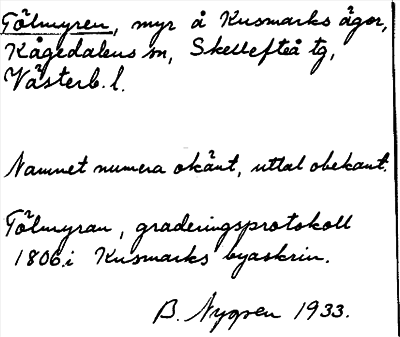 Tölmyren, myr å Kusmarks ägor,
Kågedalens sn, Skellefteå tg,
Västerb. l.
Namnet numera okänt, uttal obekant.
Tölmyran, graderingsprotokoll
1806 i Kusmarks byaskrin.
B. Nygren 1933.